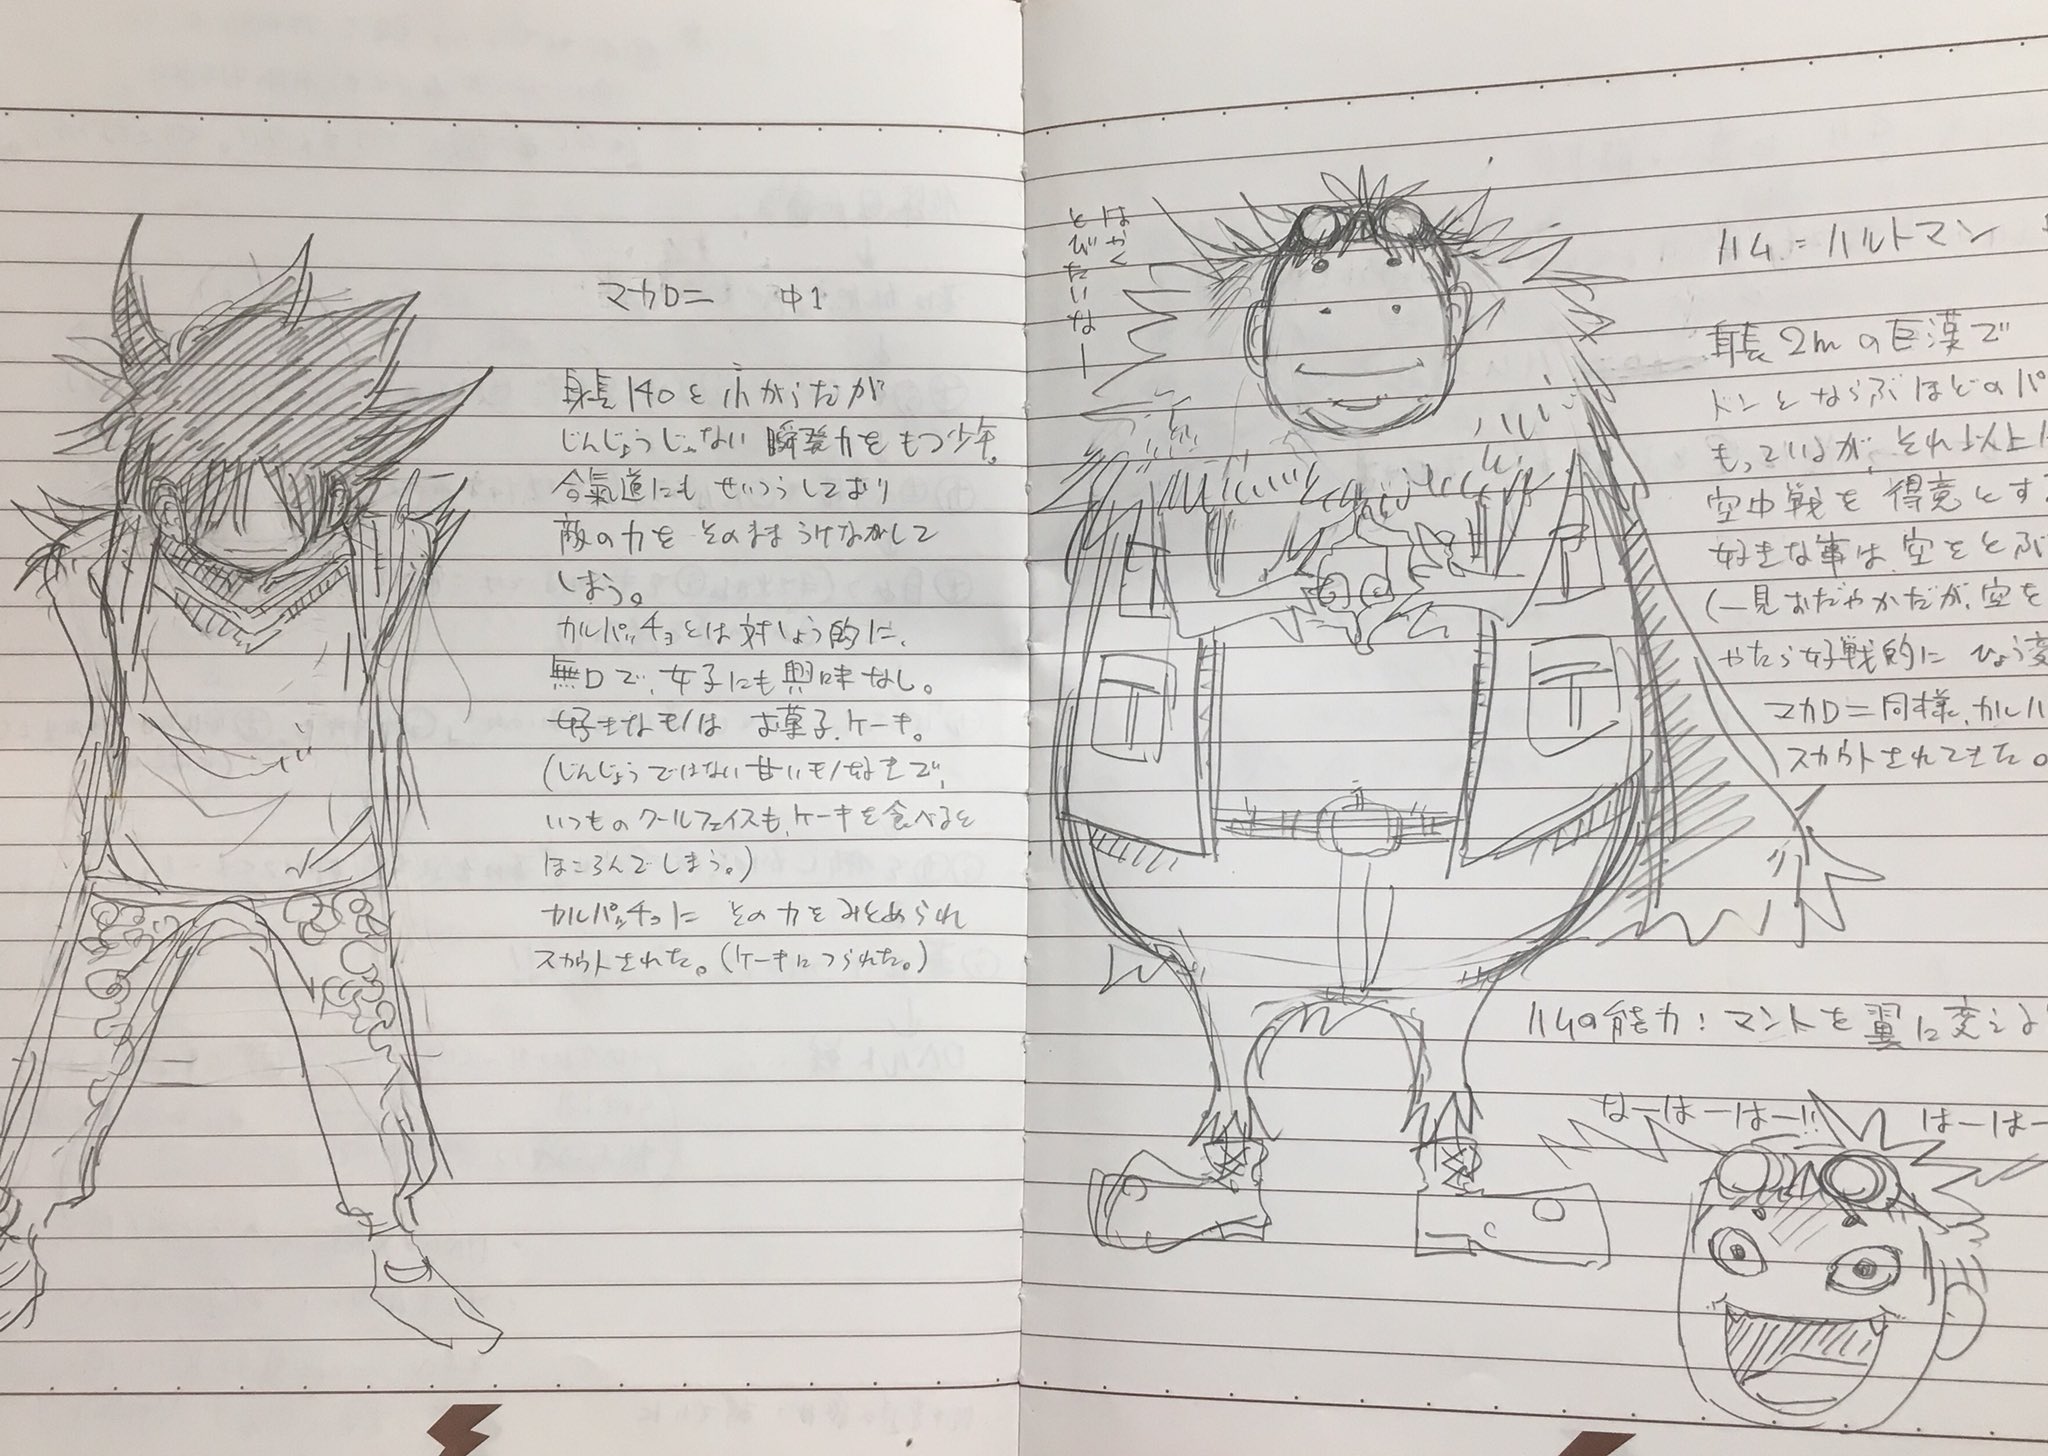 マカロニ 中1
身長140と小がらだが
じんじょうじゃない瞬発力をもつ少年。
合氣道にもせいつうしており
敵の力をそのままうけながして
しまう。
カルパッチョとは対しょう的に、
無口で、女子にも興味なし。
好きなモノは お菓子、ケーキ。
(じんじょうではない甘いモノ好きで、
いつものクールフェイスも、ケーキを食べると
ほころんでしまう。)
カルパッチョに その力をみとめられ
スカウトされた。(ケーキにつられた。)
はやく
とびたいなー
ハム=ハルトマン
身長2mの巨漢で
ドンとならぶほどのパ
もっているが、それ以上に
空中戦を得意とす
好きな事は、空をとぶ
(一見おだやかだが、空を
やたら好戦的にひょう変
マカロニ同様、カルパ
スカウトされてきた。
ハムの能力:マントを翼に変える
なーはーはー!!
はーはー